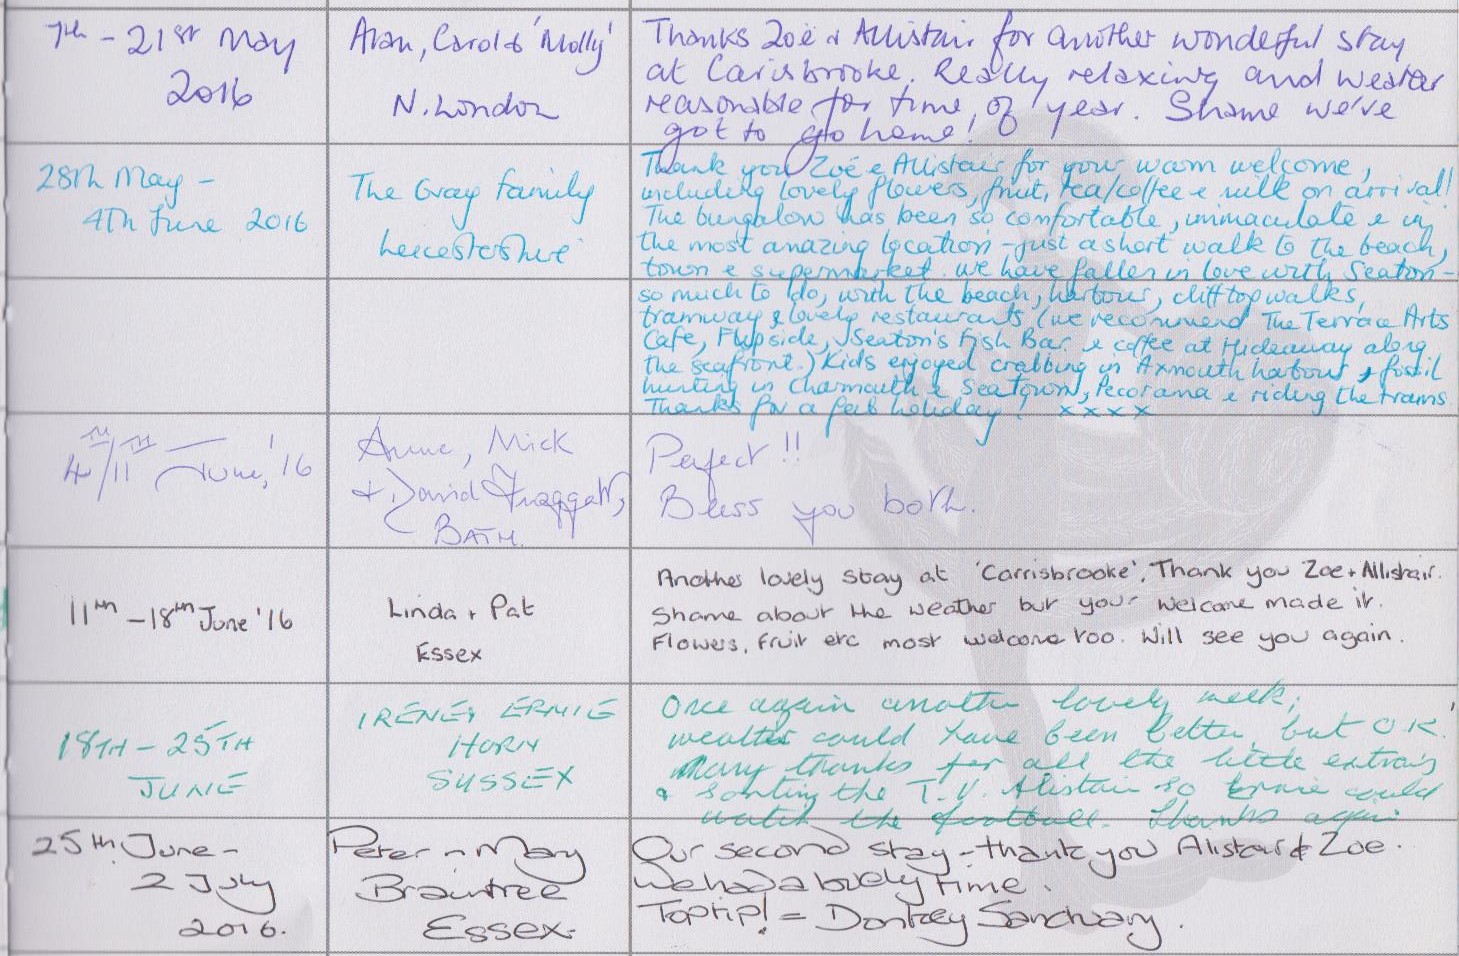 7th - 21st May
2016
Alan, Carol & 'Molly'
N. London
Thanks Zoë & Allistair for another wonderful stay
at Carisbrooke. Really relaxing and weater
reasonable for time of year. Shame we've
got to go home!
28th May -
4th June 2016
The Gray Family
Leicestershire
Thank you Zoë & Allistair for your warm welcome,
including lovely flowers, fruit, tea/coffee & milk on arrival!
The bungalow has been so comfortable, immaculate & in
the most amazing location - just a short walk to the beach,
town & supermarket. We have fallen in love with Seaton -
so much to do, with the beach, harbour, clifftop walks,
tramway & lovely restaurants (we recommend The Terrace Arts
Cafe, Flipside, Seaton's Fish Bar & coffee at Hideaway along
the seafront.) Kids enjoyed crabbing in Axmouth harbour & fossil
hunting in Charmouth & Seatown, Pecorama & riding the trams.
Thanks for a fab holiday! xxxx
4th/11th June, '16
Anne, Mick
& David Fraggatt,
BATH.
Perfect!!
Bless you both.
11th - 18th June '16
Linda + Pat
Essex
Another lovely stay at 'Carrisbrooke', Thank you Zoe + Allistair.
Shame about the weather but your welcome made it.
Flowers, fruit etc most welcome too. Will see you again.
18TH - 25TH
JUNE
IRENE & ERNIE
HORN
SUSSEX
Once again another lovely week;
weather could have been better, but O.K.
Many thanks for all the little extra's
& sorting the T.V. Alistair so Ernie could
watch the football. Thanks again
25th June -
2 July
2016.
Peter n Mary
Braintree
Essex.
Our second stay - thank you Alistair & Zoe.
We had a lovely time.
Top tip! = Donkey Sanctuary.